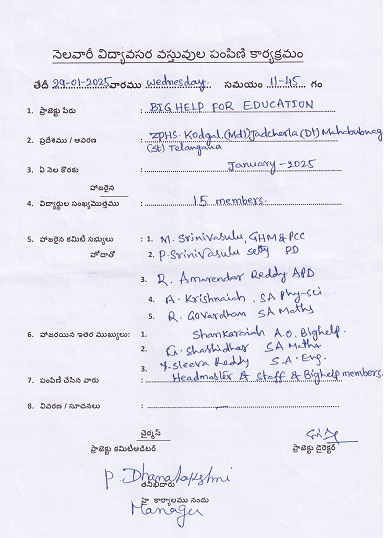 నెలవారీ విద్యావసర వస్తువుల పంపిణి కార్యక్రమం
తేదీ 29-01-2025 వారము Wednesday. సమయం 11-45 గం
1. ప్రాజెక్టు పేరు : BIG HELP FOR EDUCATION
2. ప్రదేశము / ఆవరణ : ZPHS. Kodgal. (Md) Jadcherla (Dt) Mahabubnag
(st) Telangana
3. ఏ నెల కొరకు : January - 2025
హాజరైన
4. విద్యార్థుల సంఖ్యమొత్తము : 15 members.
5. హాజరైన కమిటి సభ్యులు : 1. M. Srinivasulu, GHM & PCC
హోదాతో 2. P. Srinivasulu Setty PD
3. R. Amarendar Reddy APD
4. A. Krishnaiah, SA Phy-Sci
5. R. Govardhan SA Maths
6. హాజరయిన ఇతర ముఖ్యులు: 1. Shankaraiah A.O. Bighelp.
2. Shashidhar SA Maths
3. Sleeva Reddy S.A. Eng.
7. పంపిణి చేసిన వారు : Headmaster & Staff & Bighelp members.
8. వివరణ / సూచనలు :
చైర్మన్
ప్రాజెక్టు కమిటిఆడిటర్ ప్రాజెక్టు డైరెక్టర్
P. Dhanalakshmi
తనిఖీదారు
హై కార్యాలయము నందు
Manager